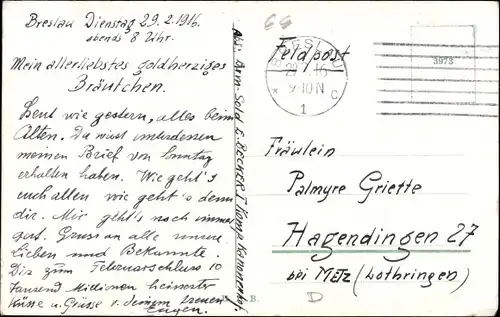 Breslau Dienstag 29.2.1916.
abends 8 Uhr.
Mein allerliebstes goldherziges
Bräutchen.
Heut wie gestern, alles beim
Alten. Du wirst unterdessen
meinen Brief von Sonntag
erhalten haben. Wie geht's
euch allen wie geht's denn
dir. Mir geht's noch immer
gut. Gruss an alle unsere
Lieben und Bekannte.
Dir zum Februarschluss 10
Tausend Millionen heisseste
Küsse u. Grüsse v. deinem treuen
Eugen.
Abs: Arm-Sold E. BECKER I Komp.
Feldpost
BRESLAU
9-10 N
* C
1
3973
Fräulein
Palmyre Griette
Hagendingen 27
bei Metz (Lothringen)
B.
D